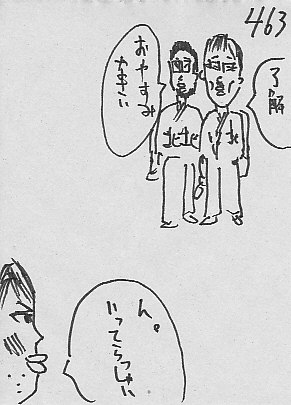 463
了解
おやすみ
なさい
北北
北
ん。
いってらっしゃい